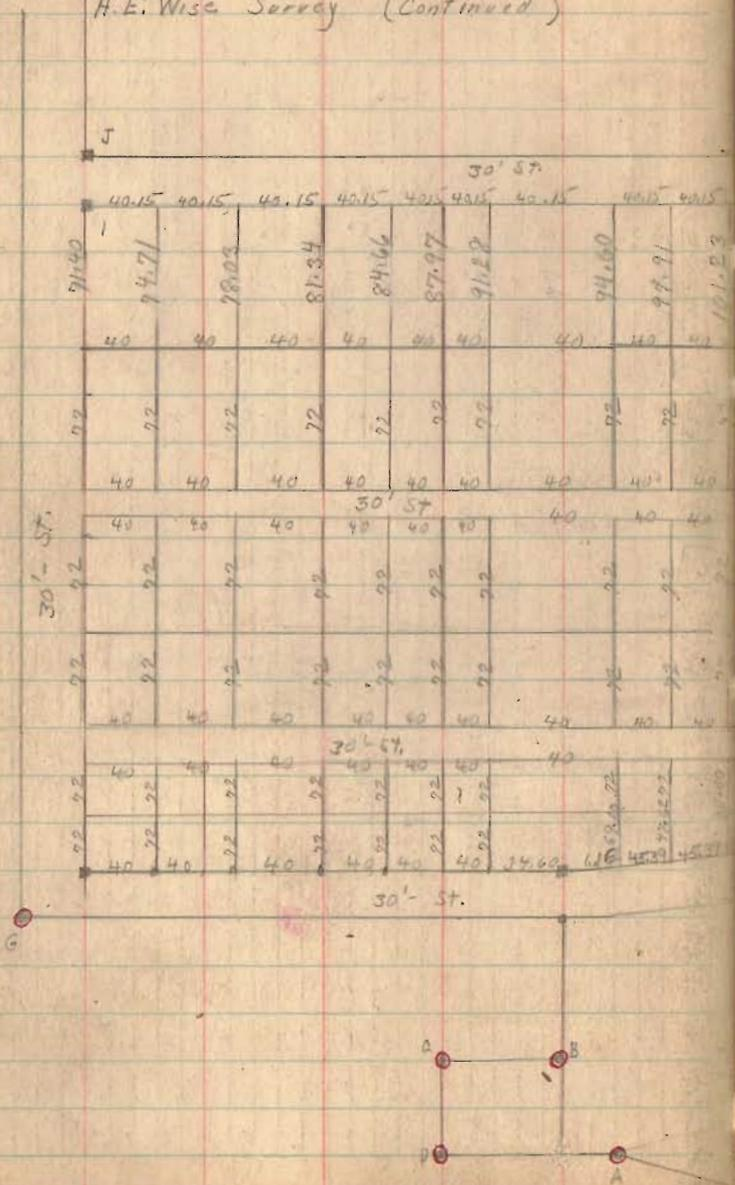 H.E. Wise Survey (Continued)
J
30' St.
40.15 40.15 40.15 40.15 40.15 40.15 40.15 40.15 40.15
1
71.40 74.71 78.03 81.34 84.66 87.97 91.28 94.60 97.91 101.23
40 40 40 40 40 40 40 40 40
72 72 72 72 72 72 72 72 72
40 40 40 40 40 40 40 40 40
30' St
40 40 40 40 40 40 40 40 40
30'- St.
72 72 72 72 72 72 72 72 72
72 72 72 72 72 72 72 72 72
40 40 40 40 40 40 40 40 40
30'- St.
40 40 40 40 40 40 40
72 72 72 72 72 72 72 72 72
72 72 72 72 72 72 72
40 40 40 40 40 40 45.39 45.39
30'- St.
G
B
D
A